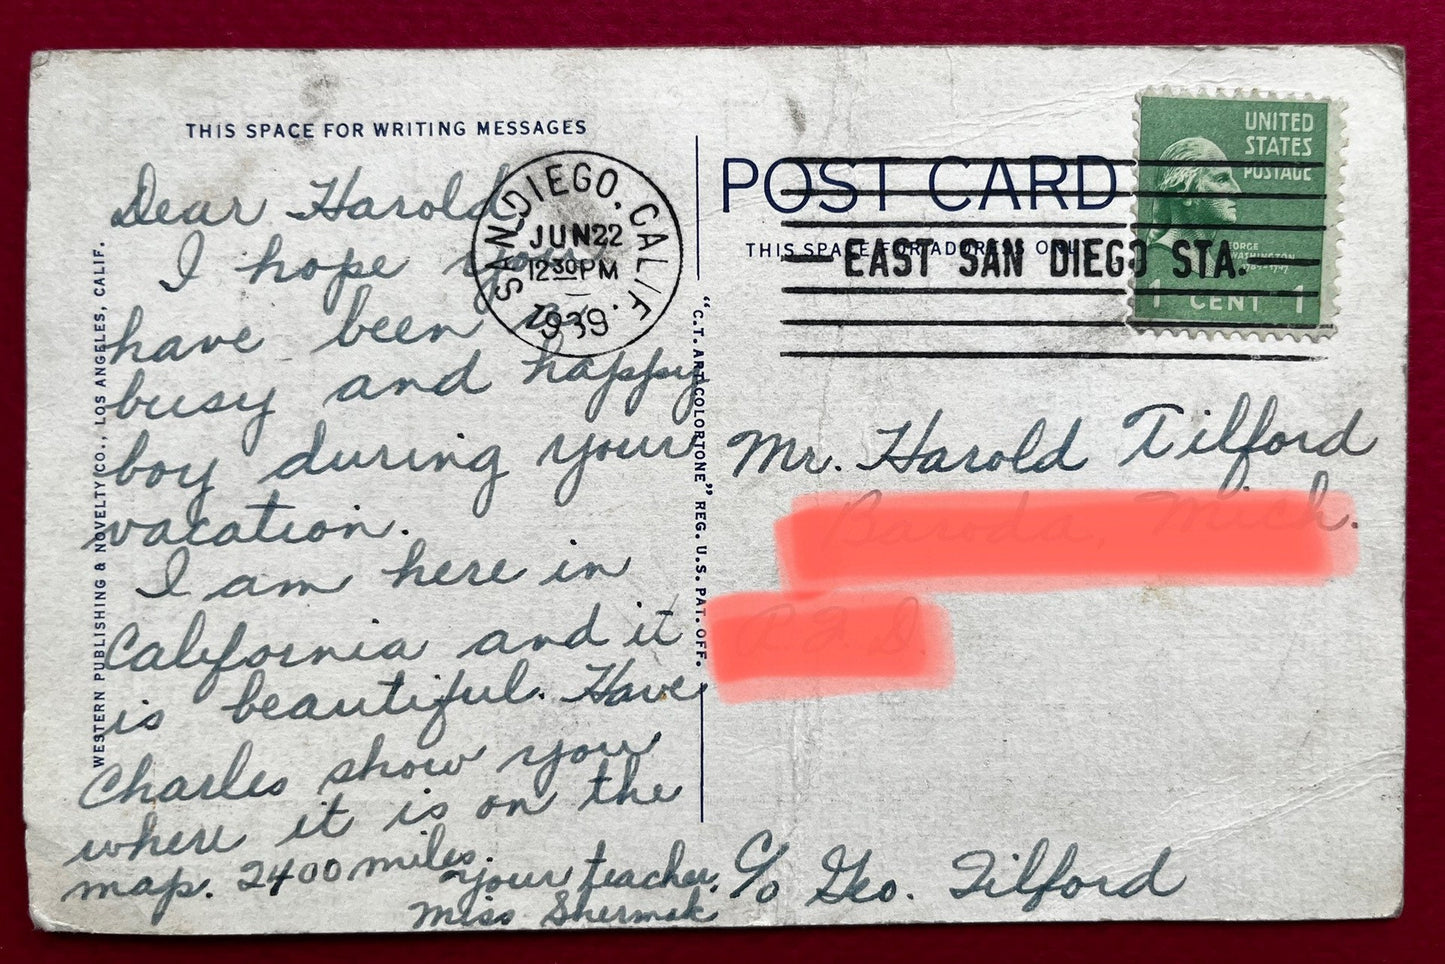 THIS SPACE FOR WRITING MESSAGES
Dear Harold
I hope you
have been a
busy and happy
boy during your
vacation.
I am here in
California and it
is beautiful. Have
Charles show you
where it is on the
map. 2400 miles.
Your teacher.
Miss Shermak
WESTERN PUBLISHING & NOVELTY CO., LOS ANGELES, CALIF.
"C.T. ART-COLORTONE" REG. U.S. PAT. OFF.
SAN DIEGO. CALIF.
JUN 22
12 30 PM
1939
POST CARD
THIS SPACE FOR ADDRESS ONLY
EAST SAN DIEGO STA.
UNITED
STATES
POSTAGE
GEORGE
WASHINGTON
1789-1797
1 CENT 1
Mr. Harold Tilford
Baroda, Mich.
R.F.D.
c/o Geo. Tilford